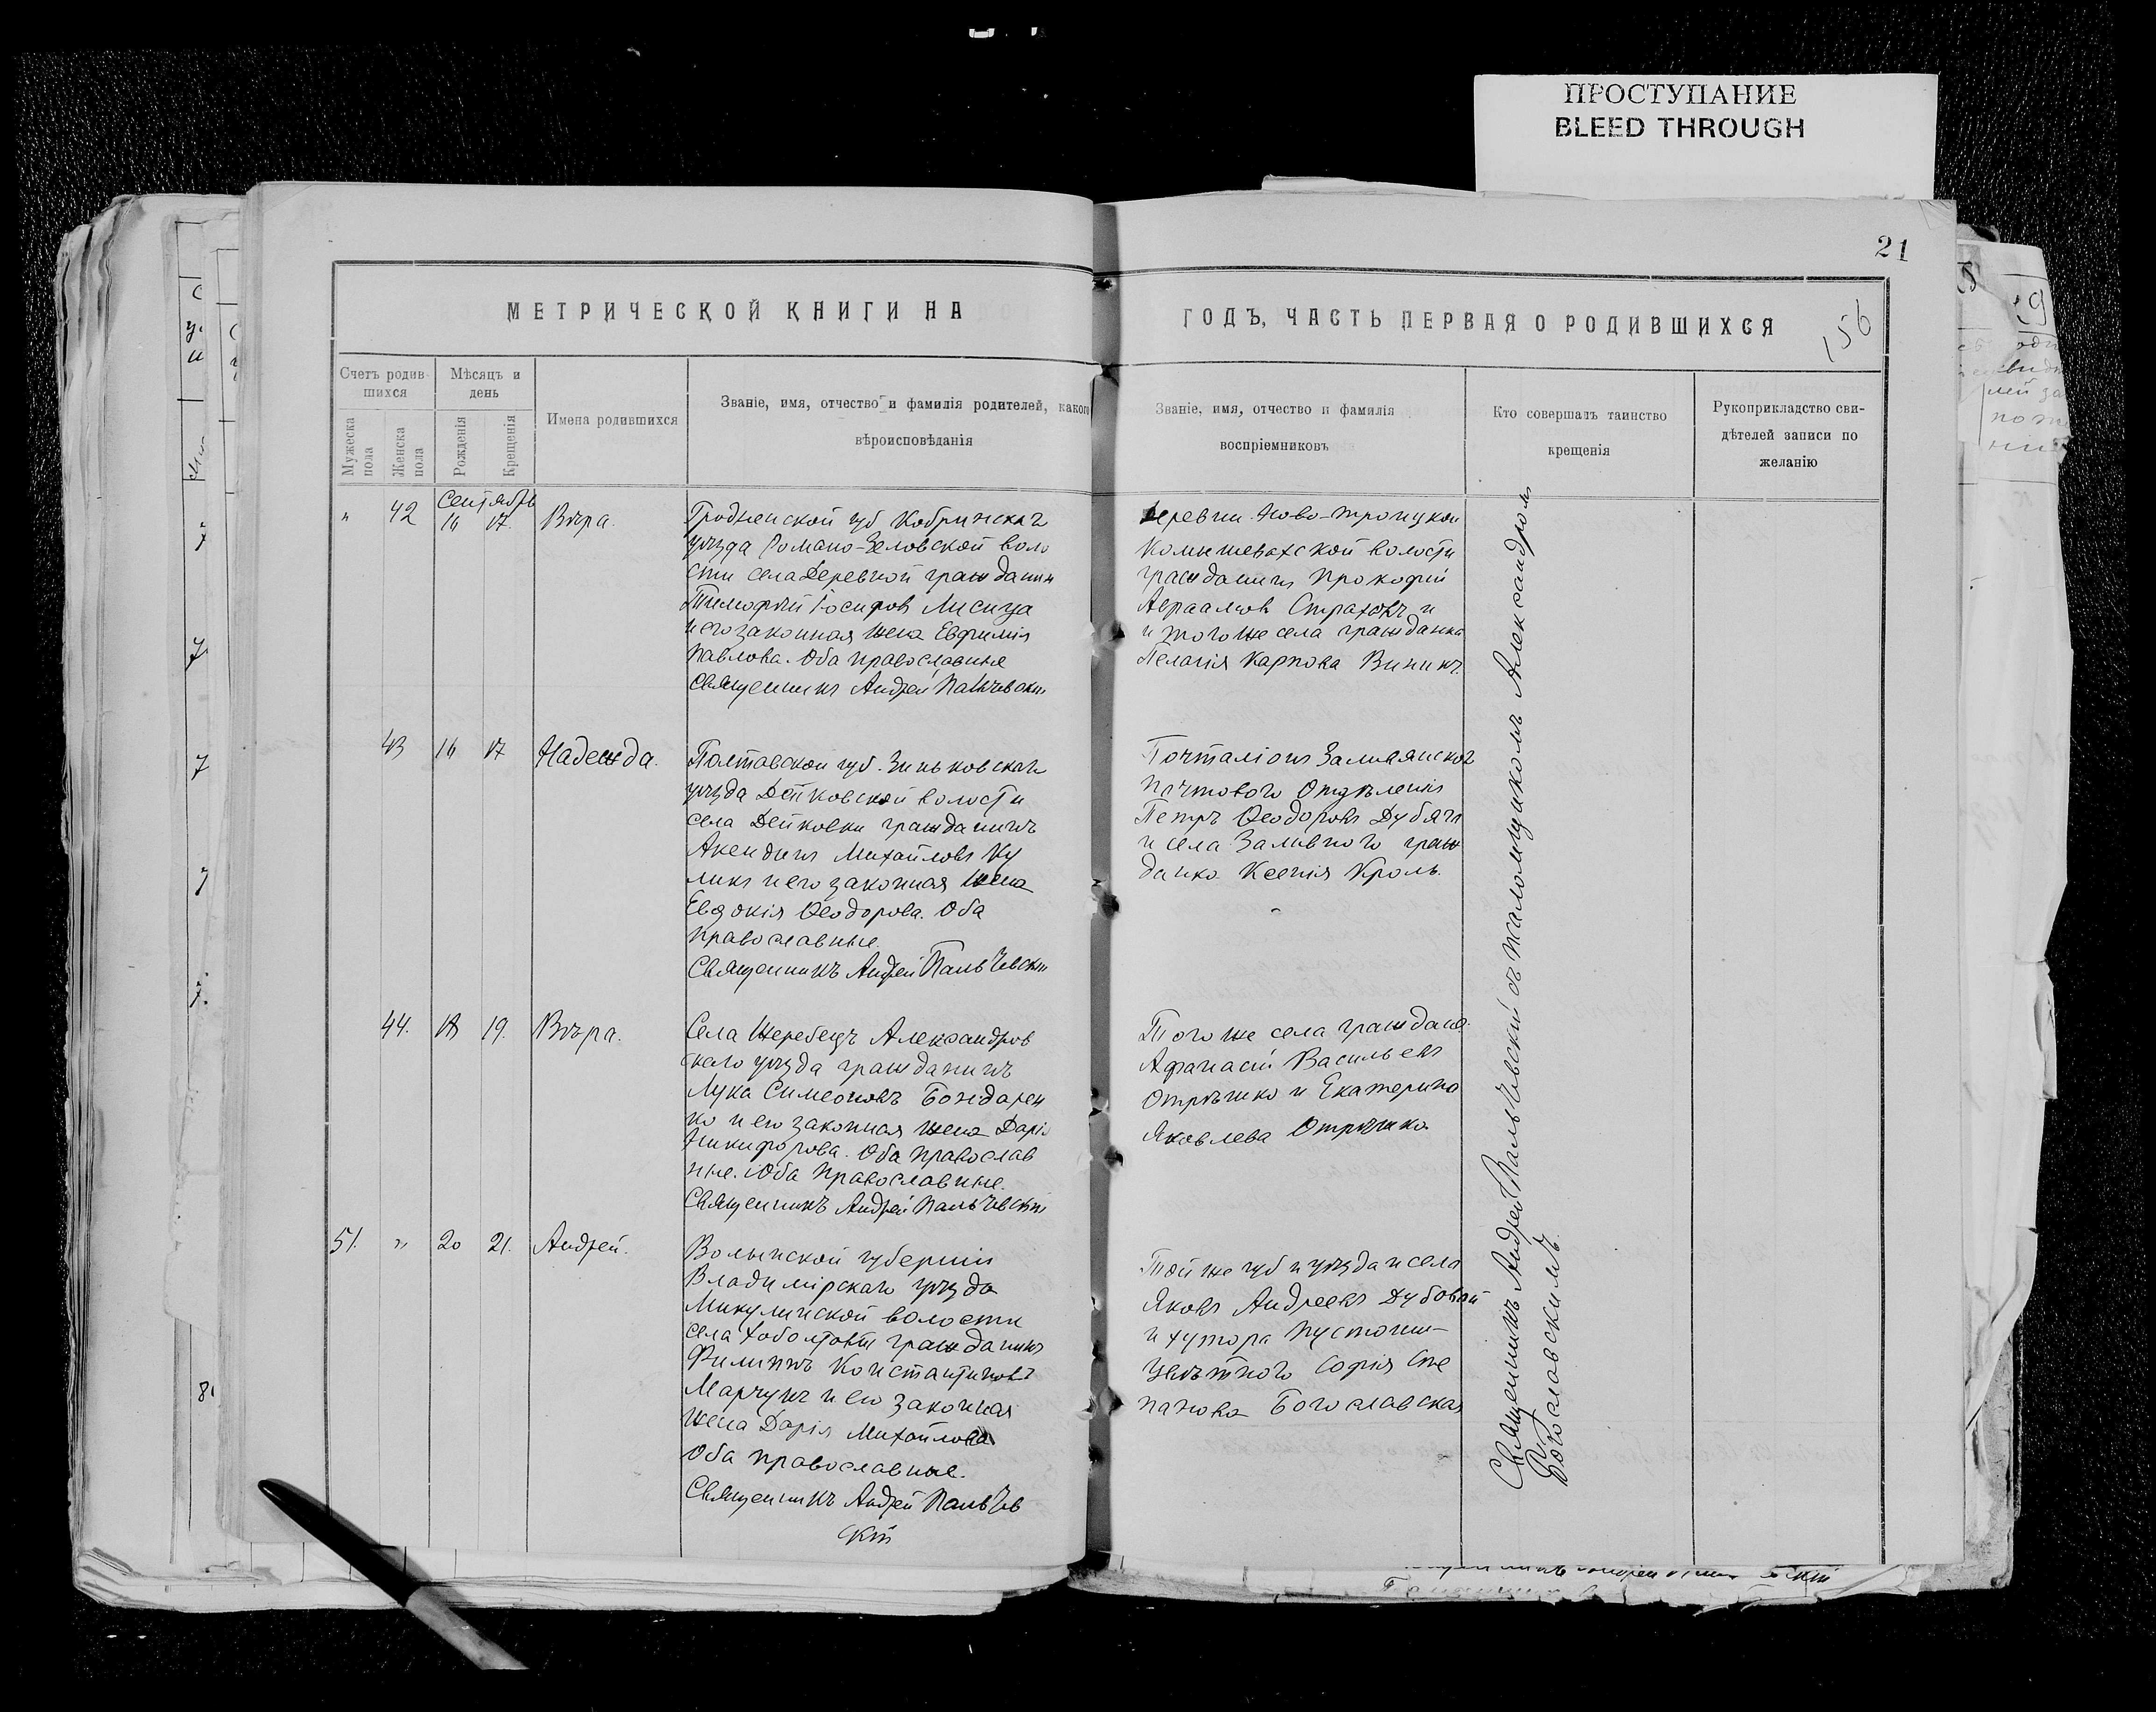 ПРОСТУПАНИЕ
BLEED THROUGH
21
156
МЕТРИЧЕСКОЙ КНИГИ НА
ГОДЪ, ЧАСТЬ ПЕРВАЯ О РОДИВШИХСЯ
Счетъ родив-
шихся
Мужеска
пола
Женска
пола
Мѣсяцъ и
день
Рожденія
Крещенія
Имена родившихся
Званіе, имя, отчество и фамилія родителей, какого
вѣроисповѣданія
Званіе, имя, отчество и фамилія
воспріемниковъ
Кто совершалъ таинство
крещенія
Рукоприкладство сви-
дѣтелей записи по
желанію
Сентябрь
" 42 16 17. Вѣра.
Гродненской губ Кобринскаго
уѣзда воло
сти села Деревной гражданин
Тимофей Іосифов Лисица
и его законная жена Евфимія
Павлова. Оба православные
Священникъ Андрей Пальчевскій
Деревни Ново-Троицкой
Комышевахской волости
гражданинъ Прокофій
Авраамов и
и того же села гражданка
Пелагія Карпова Виникъ.
43 16 17 Надежда.
Полтавской губ. Зиньковскаго
уѣзда Дейковской волости
села Дейковки гражданинъ
Михайловъ Ку
ликъ и его законная жена
Евдокія Ѳеодорова. Оба
православные.
Священникъ Андрей Пальчевскій
Почталіонъ Заливянскаго
почтового Отдѣленія
Петръ Ѳеодоровъ
и села Заливного граж
данка Ксенія Кроль.
44. 18 19. Вѣра.
Села Жеребецъ Александров
скаго уѣзда гражданинъ
Лука Симеоновъ Бондарен
ко и его законная жена Дарія
Никифорова. Оба православ
ные. Оба православные.
Священникъ Андрей Пальчевскій
Того же села граждане
Афанасій Васильевъ
Отрѣшко и Екатерина
Яковлева Отрѣшко
51. " 20 21. Андрей.
Волынской губерніи
Владимірскаго уѣзда
Микулинской волости
села гражданинъ
Филиппъ Константиновъ
Марчукъ и его законная
жена Дарія Михайлова
Оба православные.
Священникъ Андрей Пальчев
скій
Той же губ и уѣзда и села
Яковъ Андреевъ Дубовый
и хутора
Софія Сте
панова Богославская
Священникъ Андрей Пальчевскій съ псаломщикомъ Александромъ
Богославскимъ.